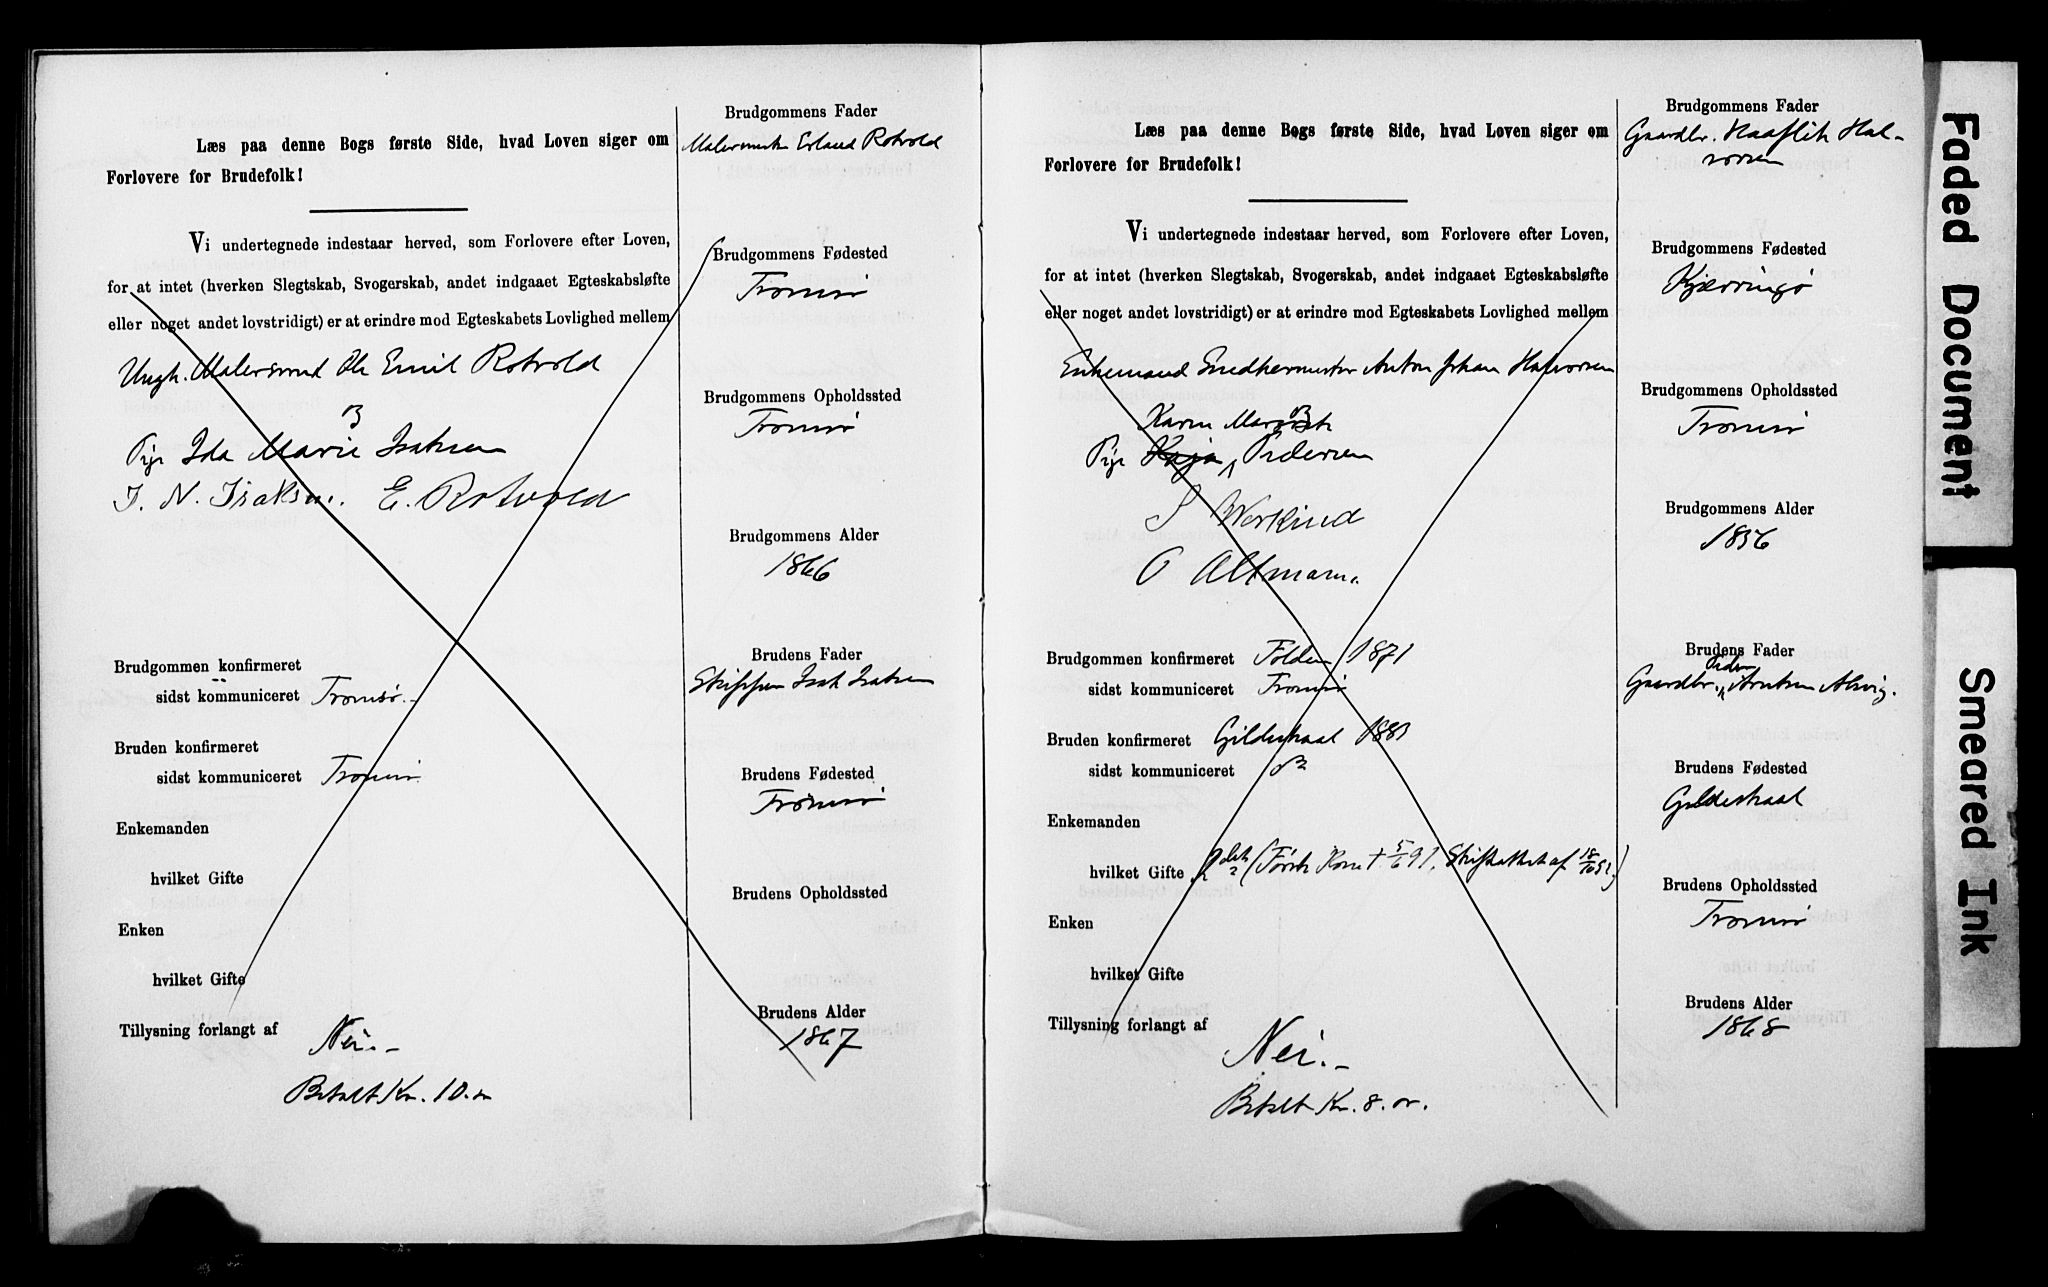 Læs paa denne Bogs første Side, hvad Loven siger om
Forlovere for Brudefolk!
Vi undertegnede indestaar herved, som Forlovere efter Loven,
for at intet (hverken Slegtskab, Svogerskab, andet indgaaet Egteskabsløfte
eller noget andet lovstridigt) er at erindre mod Egteskabets Lovlighed mellem
Ungk. Malersvend Ole Emil Rotvold
B
Pige Ida Marie Isaksen
I. N. Isaksen. E. Rotvold
Brudgommen konfirmeret
sidst kommuniceret Tromsø.
Bruden konfirmeret
sidst kommuniceret Tromsø.
Enkemanden
hvilket Gifte
Enken
hvilket Gifte
Tillysning forlangt af
Nei.-
Betalt Kr. 10.
Brudgommens Fader
Malermester Erland Rotvold
Brudgommens Fødested
Tromsø
Brudgommens Opholdssted
Tromsø
Brudgommens Alder
1866
Brudens Fader
Skipper Isak Isaksen
Brudens Fødested
Tromsø
Brudens Opholdssted
Brudens Alder
1867
Læs paa denne Bogs første Side, hvad Loven siger om
Forlovere for Brudefolk!
Vi undertegnede indestaar herved, som Forlovere efter Loven,
for at intet (hverken Slegtskab, Svogerskab, andet indgaaet Egteskabsløfte
eller noget andet lovstridigt) er at erindre mod Egteskabets Lovlighed mellem
Enkemand Smedkermester Anton Johan Halvorsen
B
Karen
Pige Kaja Pedersen
O Altmann.
Brudgommen konfirmeret Folden 1871
sidst kommuniceret Tromsø
Bruden konfirmeret Gildeskaal 1883
sidst kommuniceret do
Enkemanden
hvilket Gifte 2det (Første Kone † 5/6 91. Skifteattest af 18/10 92.)
Enken
hvilket Gifte
Tillysning forlangt af
Nei.-
Betalt Kr. 8. or.
Brudgommens Fader
Gaardbr. Haaflik Hal-
vorsen
Brudgommens Fødested
Kjærringø
Brudgommens Opholdssted
Tromsø
Brudgommens Alder
1856
Brudens Fader
Peder
Gaardbr. Arntsen Alsvig.
Brudens Fødested
Gildeskaal
Brudens Opholdssted
Tromsø
Brudens Alder
1868
Faded Document
Smeared Ink